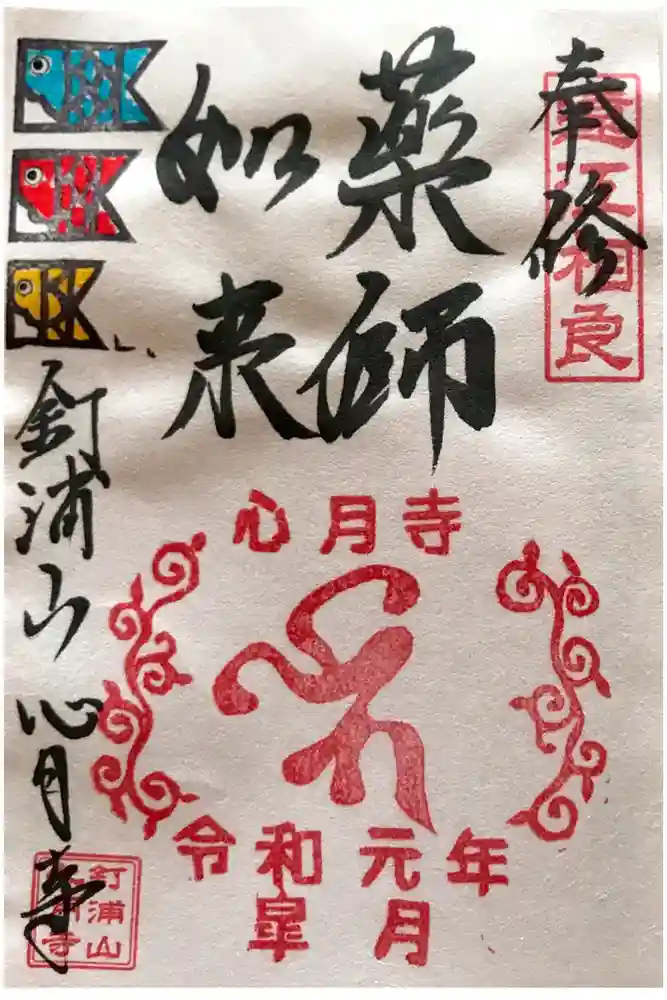 奉修
遠江相良
薬師
如来
心月寺
令和元年
皐月
釘浦山心月寺
釘浦山
心月寺